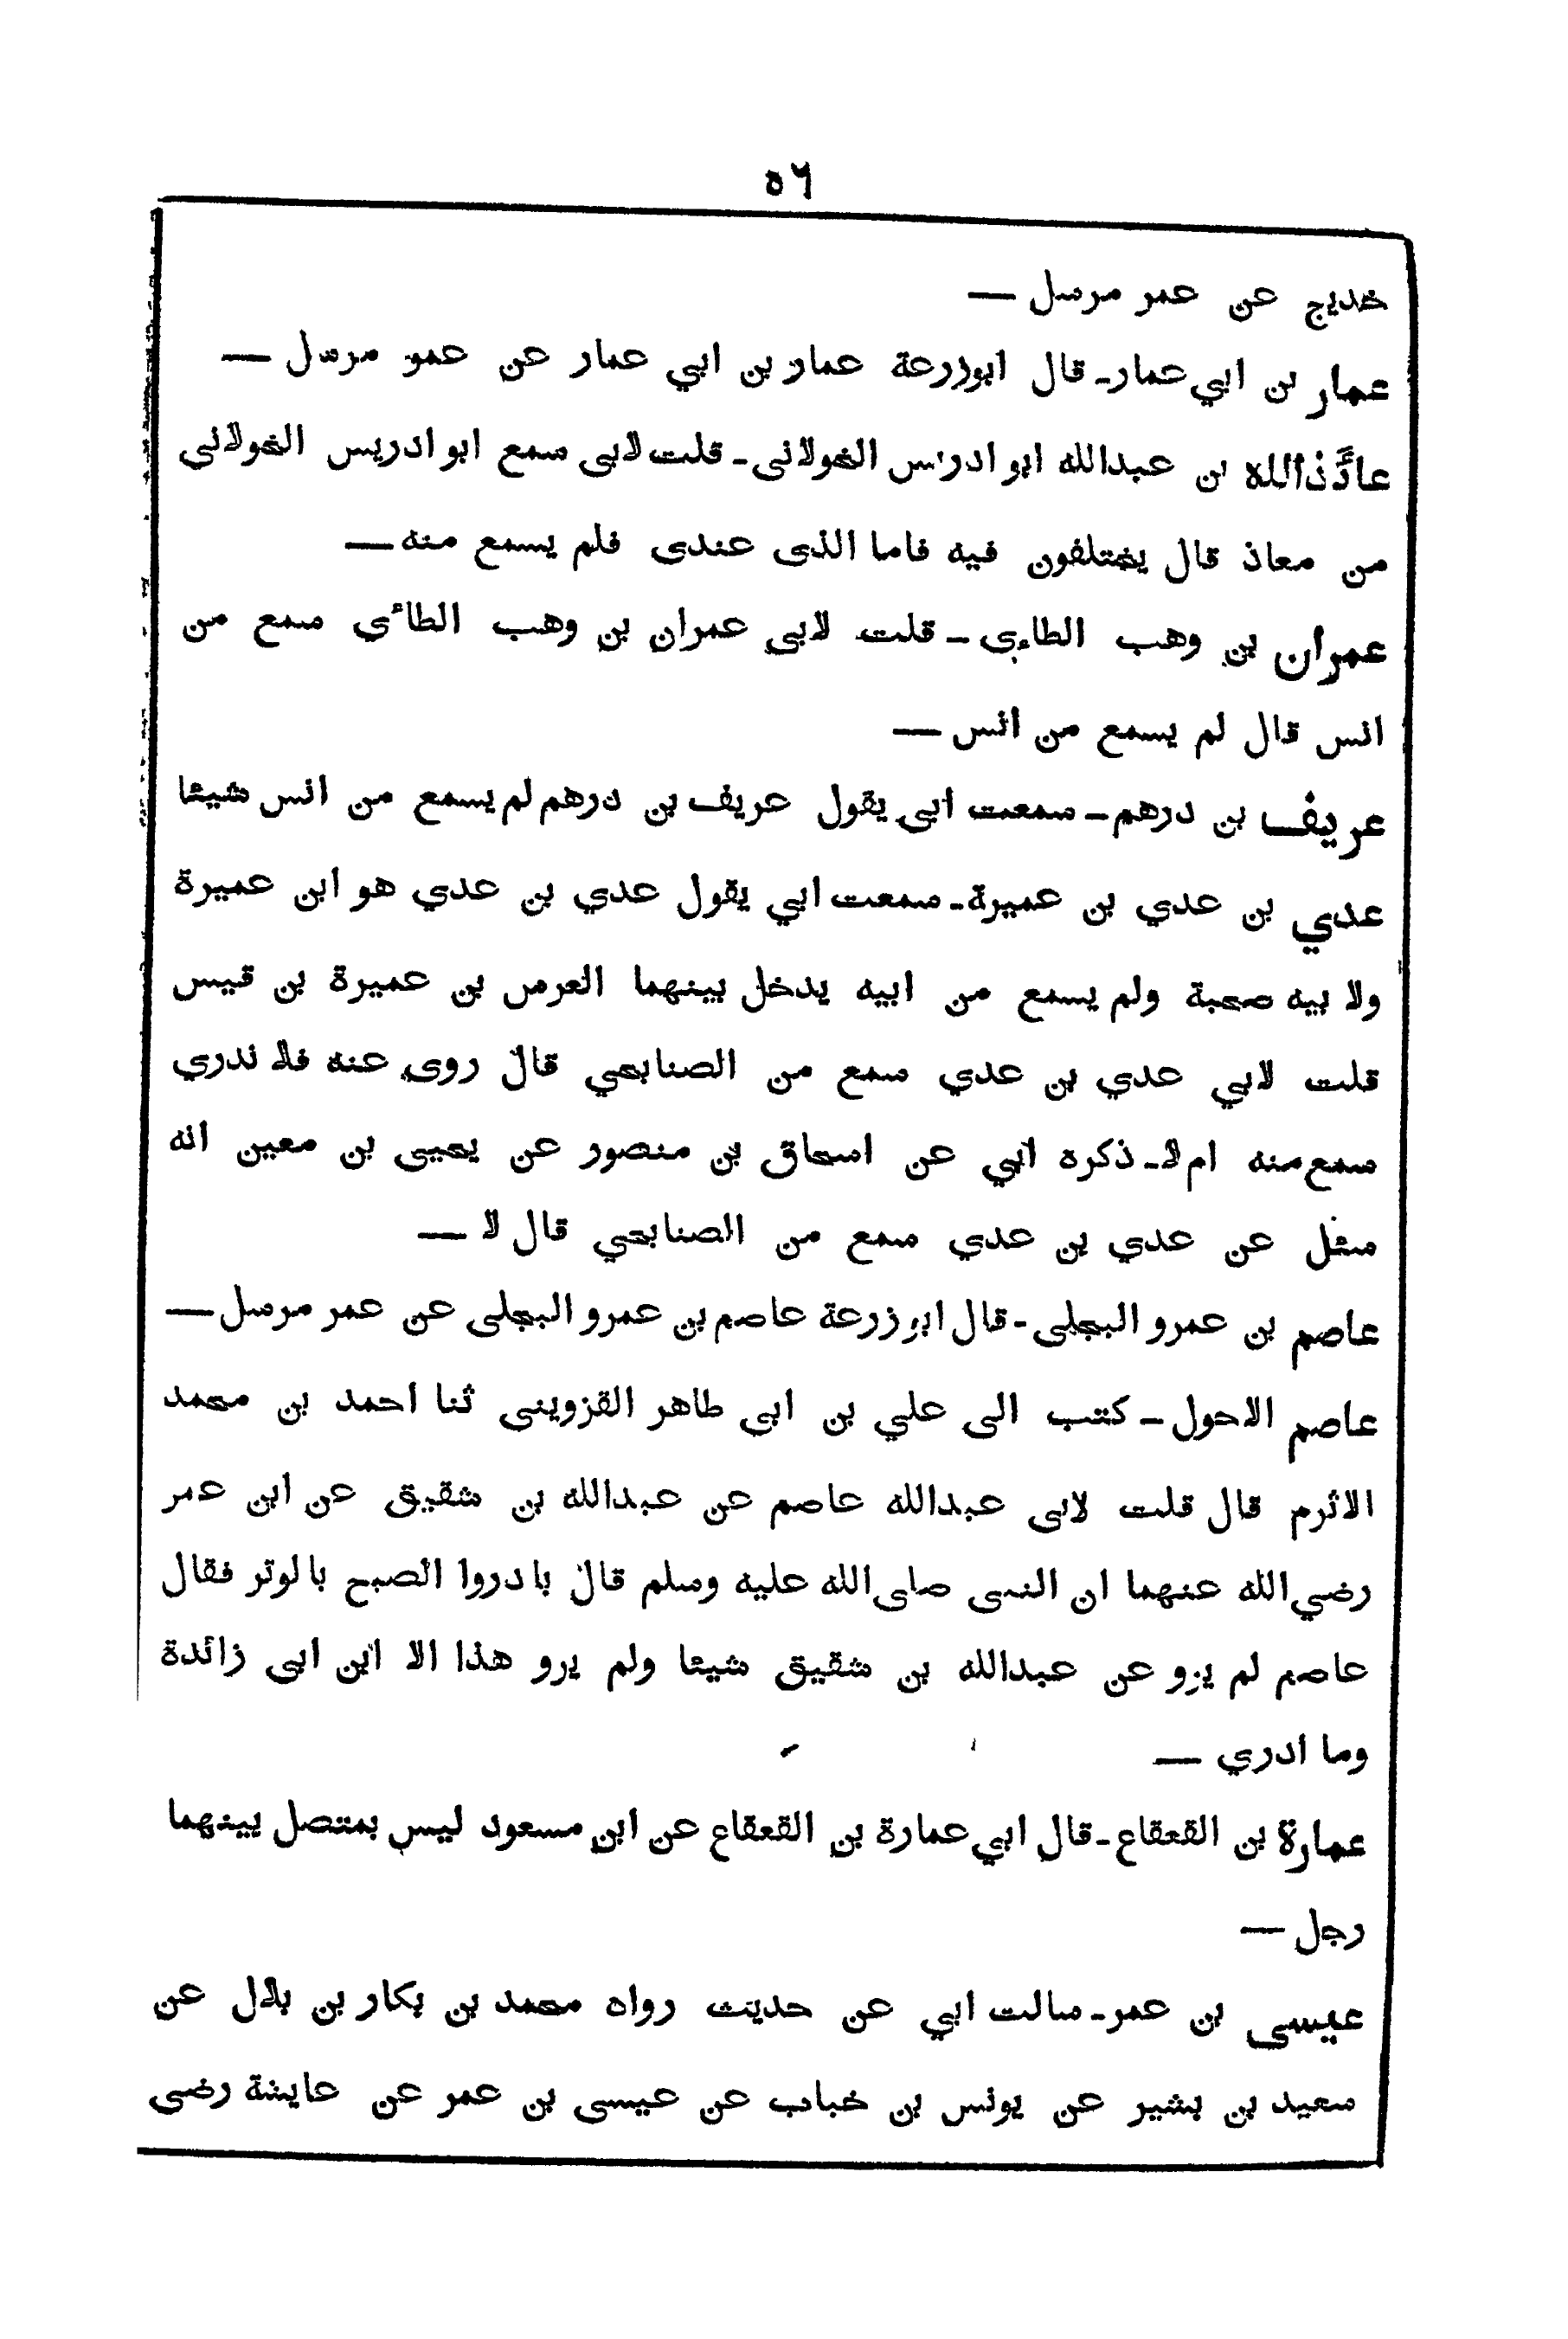 ٥٦
خديج عن عمر مرسل —
عمار بن ابي عمار - قال ابوزرعة عمار بن ابي عمار عن عمر مرسل —
عائذ الله بن عبدالله ابو ادريس الخولانى - قلت لابى سمع ابو ادريس الخولاني
من معاذ قال يختلفون فيه فاما الذى عندى فلم يسمع منه —
عمران بن وهب الطاءي - قلت لابي عمران بن وهب الطائي سمع من
انس قال لم يسمع من انس —
عريف بن درهم - سمعت ابي يقول عريف بن درهم لم يسمع من انس شيئا
عدي بن عدي بن عميرة - سمعت ابي يقول عدي بن عدي هو ابن عميرة
ولا بيه صحبة ولم يسمع من ابيه يدخل بينهما العرس بن عميرة بن قيس
قلت لابي عدي بن عدي سمع من الصنابحي قال روى عنه فلا ندري
سمع منه ام لا - ذكره ابي عن اسحاق بن منصور عن يحيى بن معين انه
سئل عن عدي بن عدي سمع من الصنابحي قال لا —
عاصم بن عمرو البجلى - قال ابو زرعة عاصم بن عمرو البجلى عن عمر مرسل —
عاصم الاحول - كتب الى علي بن ابي طاهر القزوينى ثنا احمد بن محمد
الاثرم قال قلت لابى عبدالله عاصم عن عبدالله بن شقيق عن ابن عمر
رضي الله عنهما ان النبى صلى الله عليه وسلم قال بادروا الصبح بالوتر فقال
عاصم لم يرو عن عبدالله بن شقيق شيئا ولم يرو هذا الا ابن ابى زائدة
وما ادري —
عمارة بن القعقاع - قال ابي عمارة بن القعقاع عن ابن مسعود ليس بمتصل بينهما
رجل —
عيسى بن عمر - سالت ابي عن حديث رواه محمد بن بكار بن بلال عن
سعيد بن بشير عن يونس بن خباب عن عيسى بن عمر عن عايشة رضى